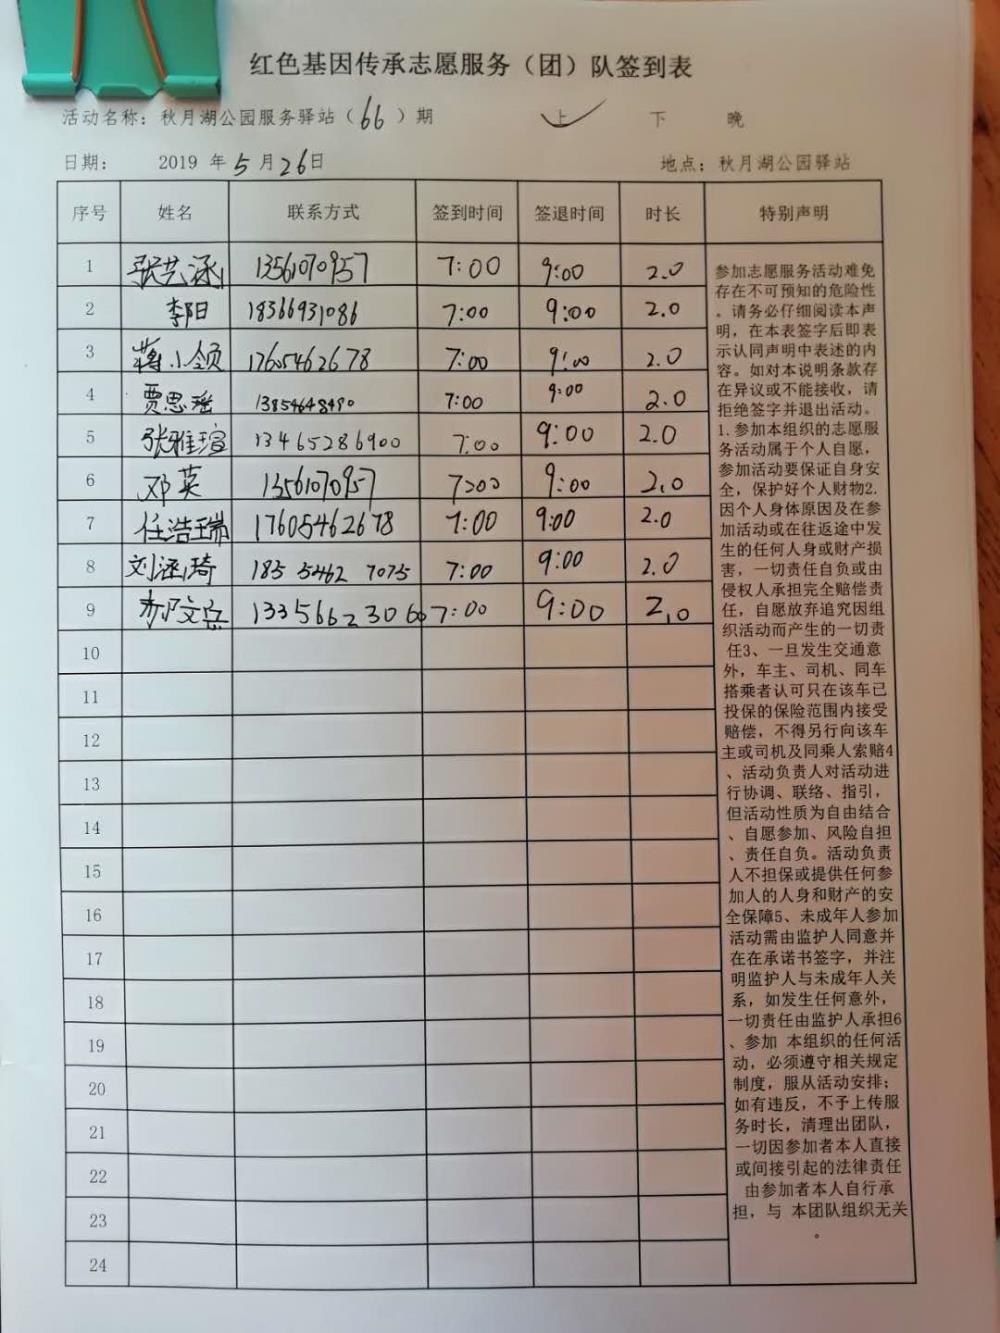 红色基因传承志愿服务（团）队签到表
活动名称：秋月湖公园服务驿站（66）期 上 下 晚
日期： 2019 年 5 月 26 日 地点：秋月湖公园驿站
序号 姓名 联系方式 签到时间 签退时间 时长 特别声明
1 张艺涵 13561070957 7:00 9:00 2.0
2 李阳 18366931086 7:00 9:00 2.0
3 蒋小领 17605462678 7:00 9:00 2.0
4 贾思瑶 13854648490 7:00 9:00 2.0
5 张雅瑄 13465286900 7:00 9:00 2.0
6 邓英 13561070957 7:00 9:00 2.0
7 任浩瑞 17605462678 7:00 9:00 2.0
8 刘涵琦 185 5462 7075 7:00 9:00 2.0
9 文岳 13356623060 7:00 9:00 2.0
10
11
12
13
14
15
16
17
18
19
20
21
22
23
24
参加志愿服务活动难免
存在不可预知的危险性
。请务必仔细阅读本声
明，在本表签字后即表
示认同声明中表述的内
容。如对本说明条款存
在异议或不能接收，请
拒绝签字并退出活动。
1.参加本组织的志愿服
务活动属于个人自愿，
参加活动要保证自身安
全，保护好个人财物2.
因个人身体原因及在参
加活动或在往返途中发
生的任何人身或财产损
害，一切责任自负或由
侵权人承担完全赔偿责
任，自愿放弃追究因组
织活动而产生的一切责
任3、一旦发生交通意
外，车主、司机、同车
搭乘者认可只在该车已
投保的保险范围内接受
赔偿，不得另行向该车
主或司机及同乘人索赔4
、活动负责人对活动进
行协调、联络、指引，
但活动性质为自由结合
、自愿参加、风险自担
、责任自负。活动负责
人不担保或提供任何参
加人的人身和财产的安
全保障5、未成年人参加
活动需由监护人同意并
在在承诺书签字，并注
明监护人与未成年人关
系，如发生任何意外，
一切责任由监护人承担6
、参加 本组织的任何活
动，必须遵守相关规定
制度，服从活动安排；
如有违反，不予上传服
务时长，清理出团队，
一切因参加者本人直接
或间接引起的法律责任
由参加者本人自行承
担，与 本团队组织无关
。